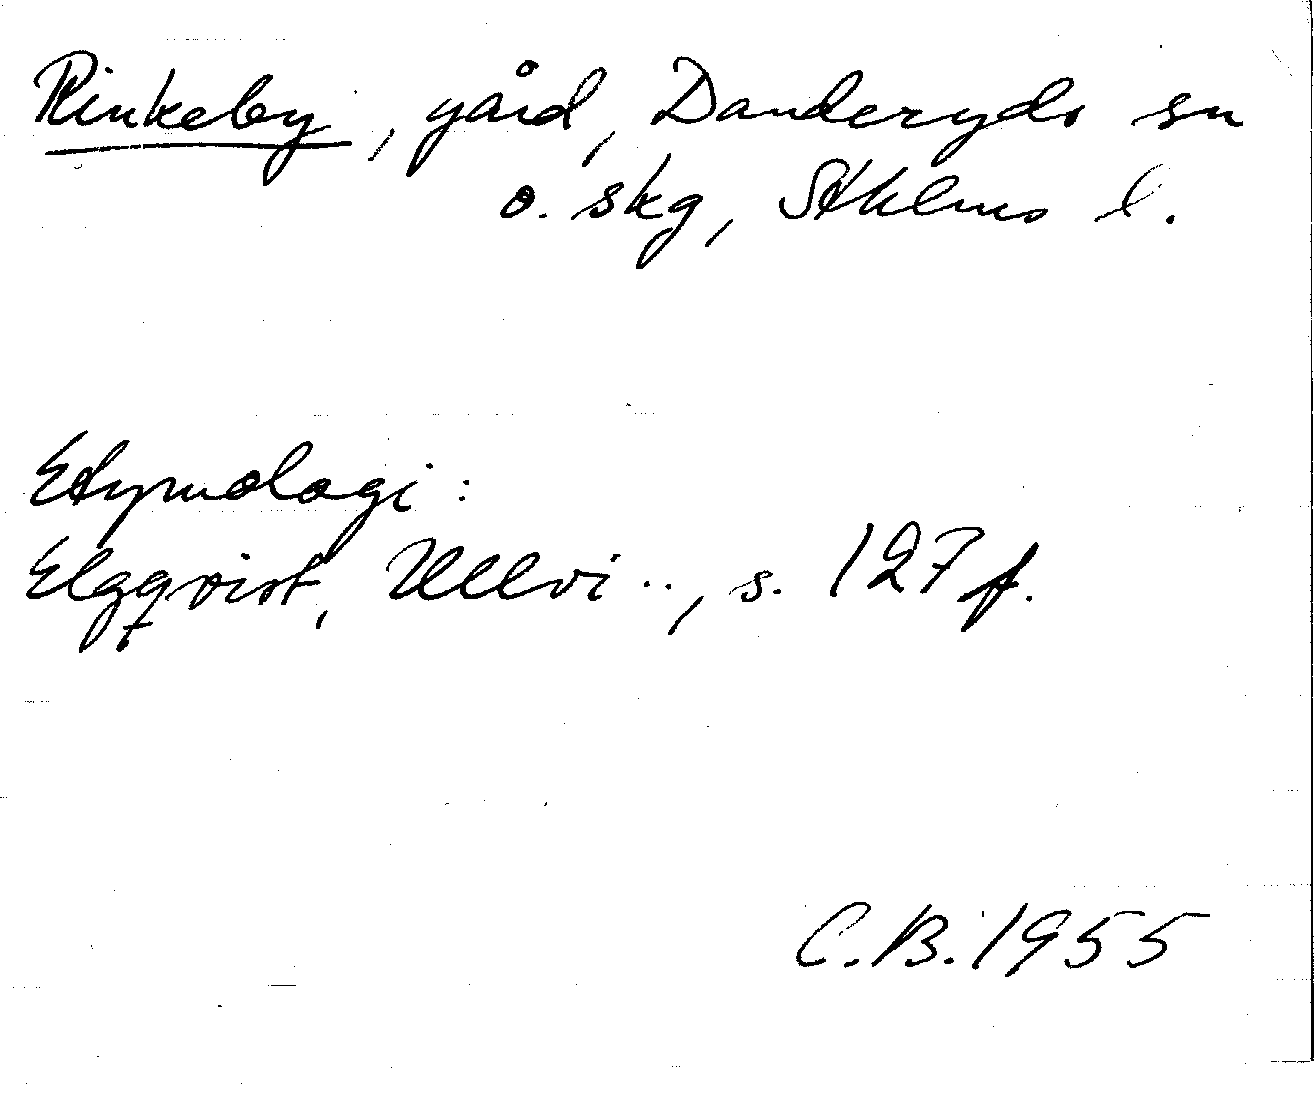 Rinkeby, gård, Danderyds sn
o. skg, Sthlms l.
Etymologi:
Elgqvist, Ullvi.., s. 127 f.
C.B. 1955